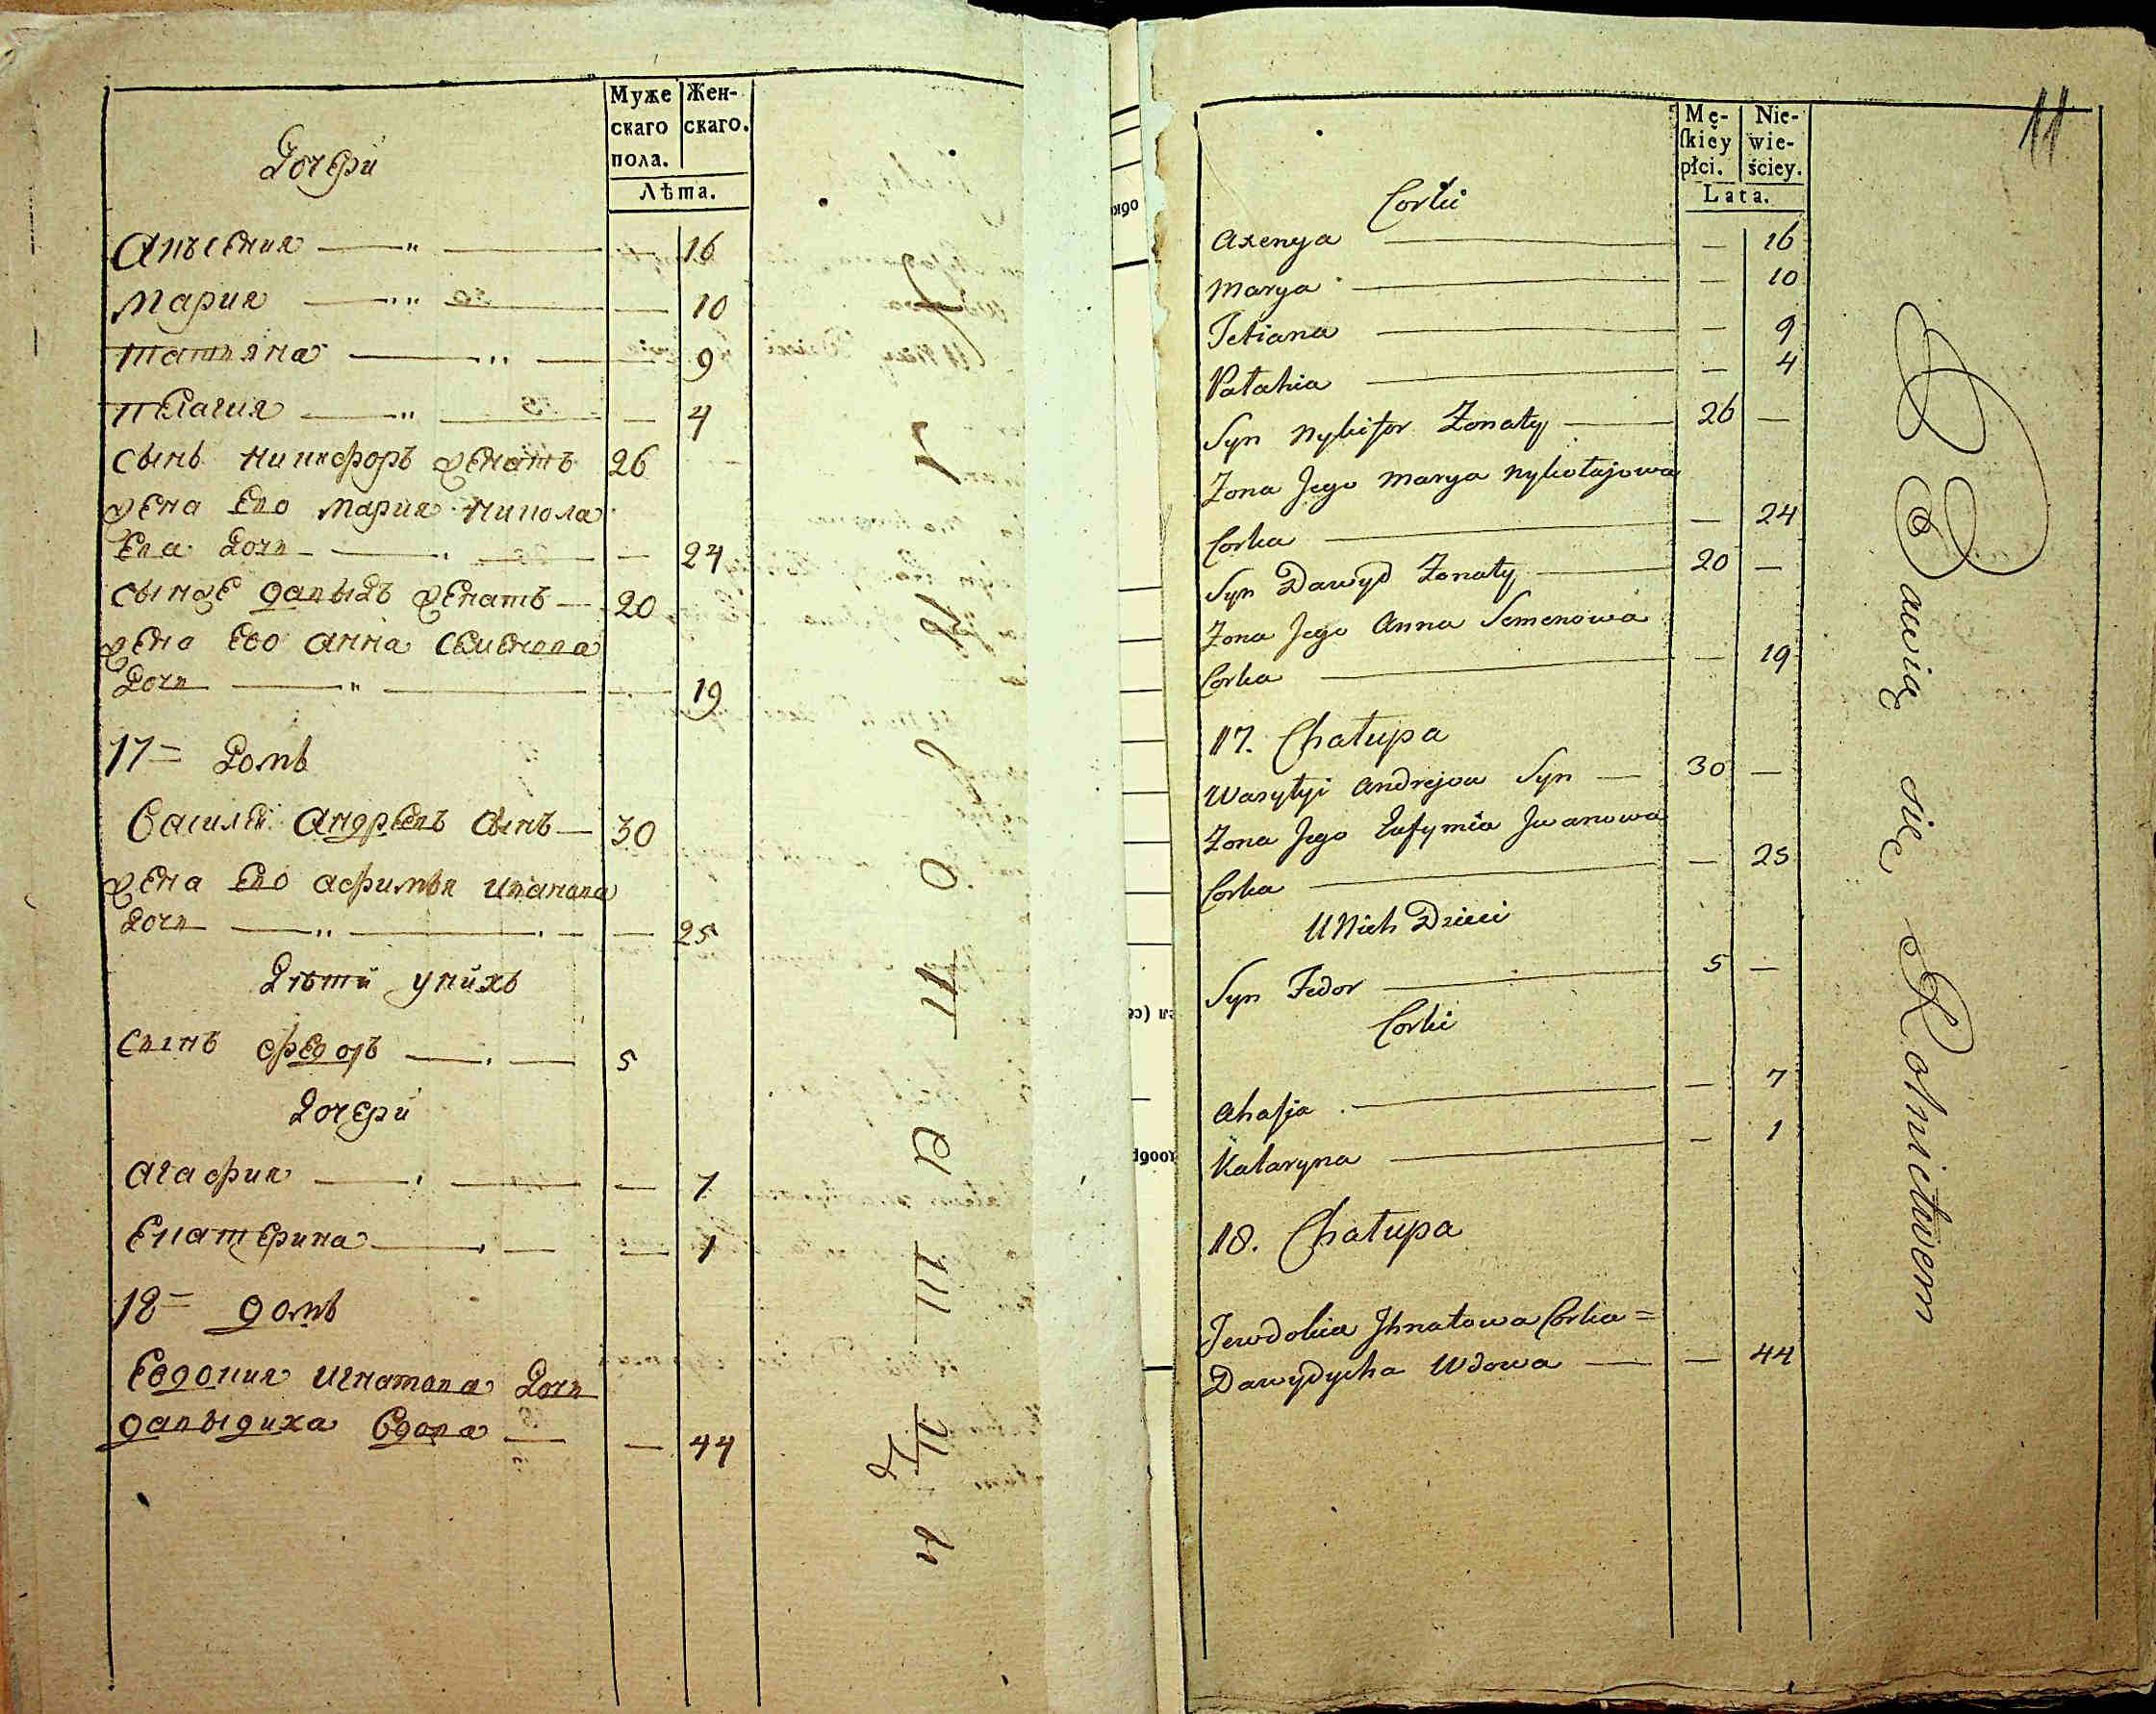 Муже
скаго
пола.
Жен-
скаго.
Лѣта.
Дочери
Аксения 16
Мария 10
Татияна 9
Пелагия 4
Сынъ Никифоръ женатъ 26
жена Ево Мария Никола
Ева дочь 24
Сынже Давыдъ женатъ 20
жена Ево Анна Семенова
дочь 19
17 = Домъ
Василей Андреевъ сынъ 30
жена Ево Афимья Иванова
дочь 25
Дѣти у нихъ
Сынъ Федоръ 5
Дочери
Агафия 7
Екатерина 1
18 = домъ
Евдокия Игнатова дочь
Давыдиха вдова 44
11
Mę-
skiey
płci.
Nie-
wie-
ściey.
Lata.
Corki
Axenya — 16
Marya — 10
Tetiana — 9
Pałahia — 4
Syn Nykifor Zonaty 26 —
Zona Jego Marya Nykołajowa
Corka — 24
Syn Dawyd Zonaty 20 —
Zona Jego Anna Semenowa
Corka — 19
17. Chałupa
Wasylyi Andrejow Syn 30 —
Zona Jego Eufymia Jwanowa
Corka — 25
U Nich Dzieci
Syn Fedor 5 —
Corki
Ahafja — 7
Kataryna — 1
18. Chałupa
Jewdokia Jhnatowa Corka =
Dawydycha Wdowa — 44
Bawią się Rolnictwem